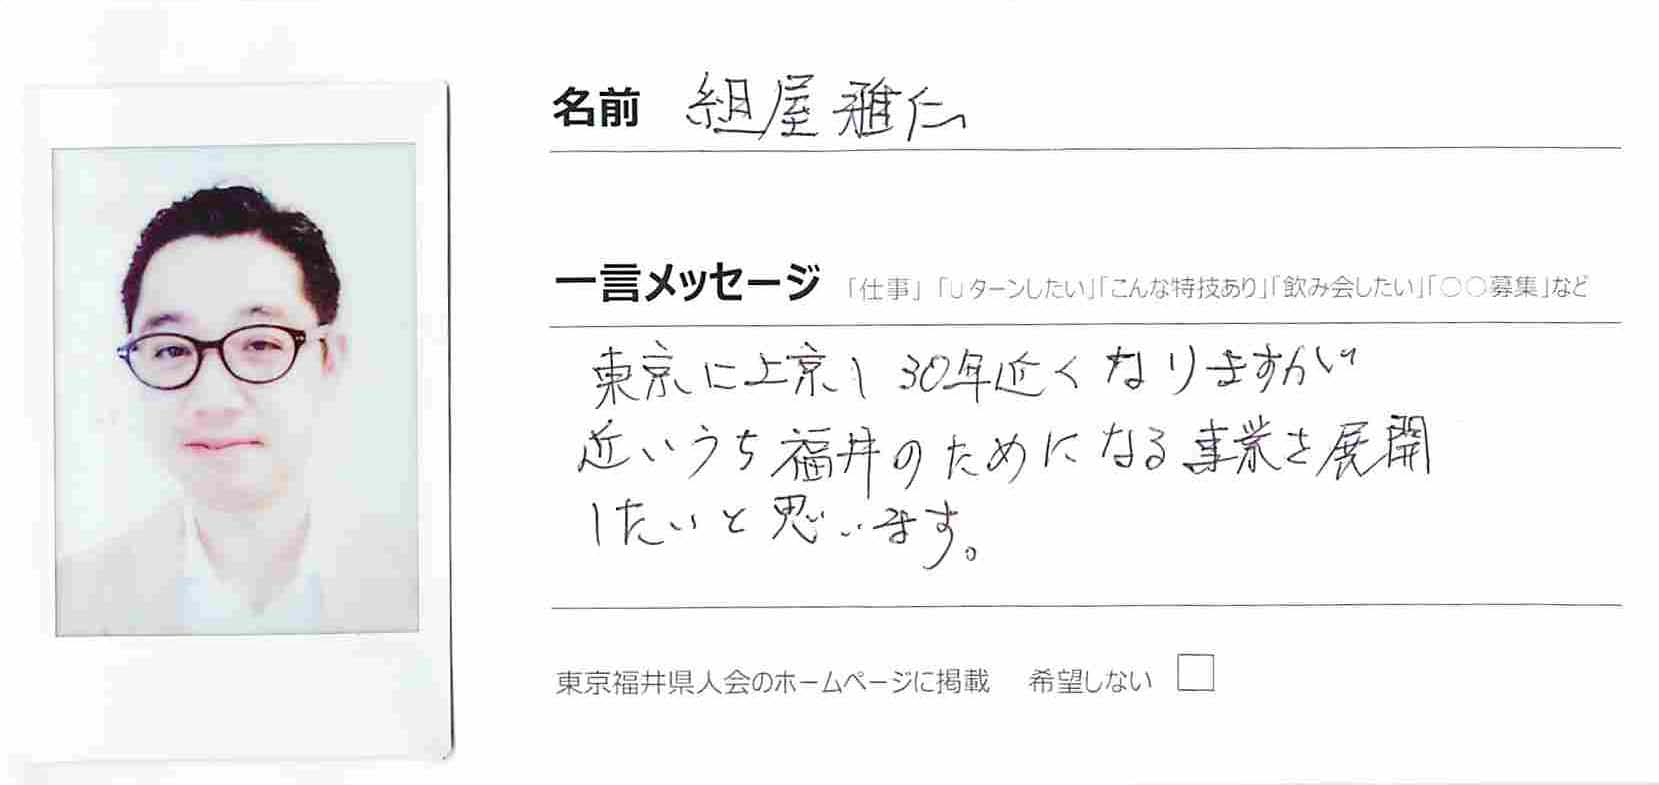 名前 組屋雅仁
一言メッセージ 「仕事」「Uターンしたい」「こんな特技あり」「飲み会したい」「〇〇募集」など
東京に上京し30年近くなりますが
近いうち福井のためになる事業を展開
したいと思います。
東京福井県人会のホームページに掲載 希望しない □